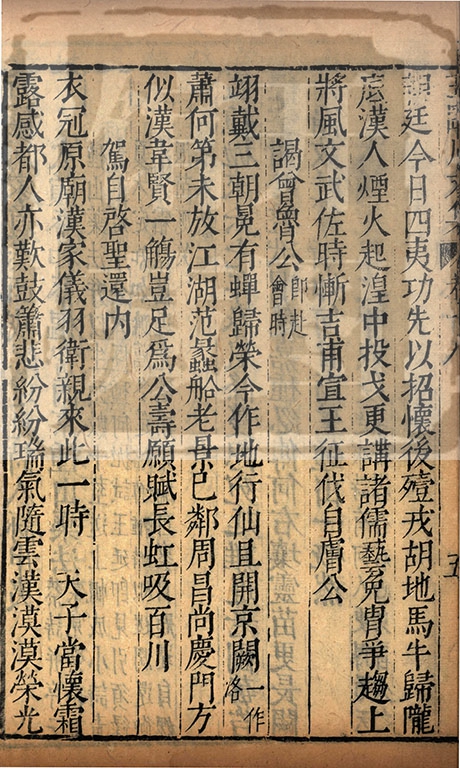 卷十八
五
朝廷今日四夷功先以招懷後殪戎胡地馬牛歸隴
底漢人煙火起湟中投戈更講諸儒藝免胄爭趨上
將風文武佐時慚吉甫宣王征伐自膚公
謁曾魯公即赴會時
翊戴三朝冕有蟬歸榮今作地行仙且開京闕一作洛
蕭何第未放江湖范蠡船老景已鄰周昌尚慶門方
似漢韋賢一觴豈足爲公壽願賦長虹吸百川
駕自啓聖還內
衣冠原廟漢家儀羽衛親來此一時 天子當懷霜
露感都人亦歎鼓簫悲紛紛瑞氣隨雲漢漠漠榮光